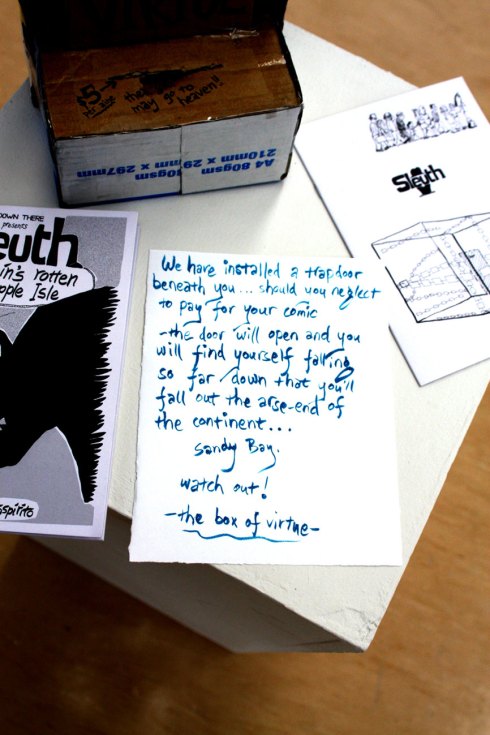 VIRTUE
$5
that
may go to
heaven!!
A4 80gsm
210mm x 297mm
DOWN THERE
presents
euth
in's rotten
pple Isle
sspirito
Sleuth
We have installed a trapdoor
beneath you... should you neglect
to pay for your comic
-the door will open and you
will find yourself falling
so far down that you'll
fall out the arse-end of
the continent...
Sandy Bay.
watch out!
-the box of virtue-